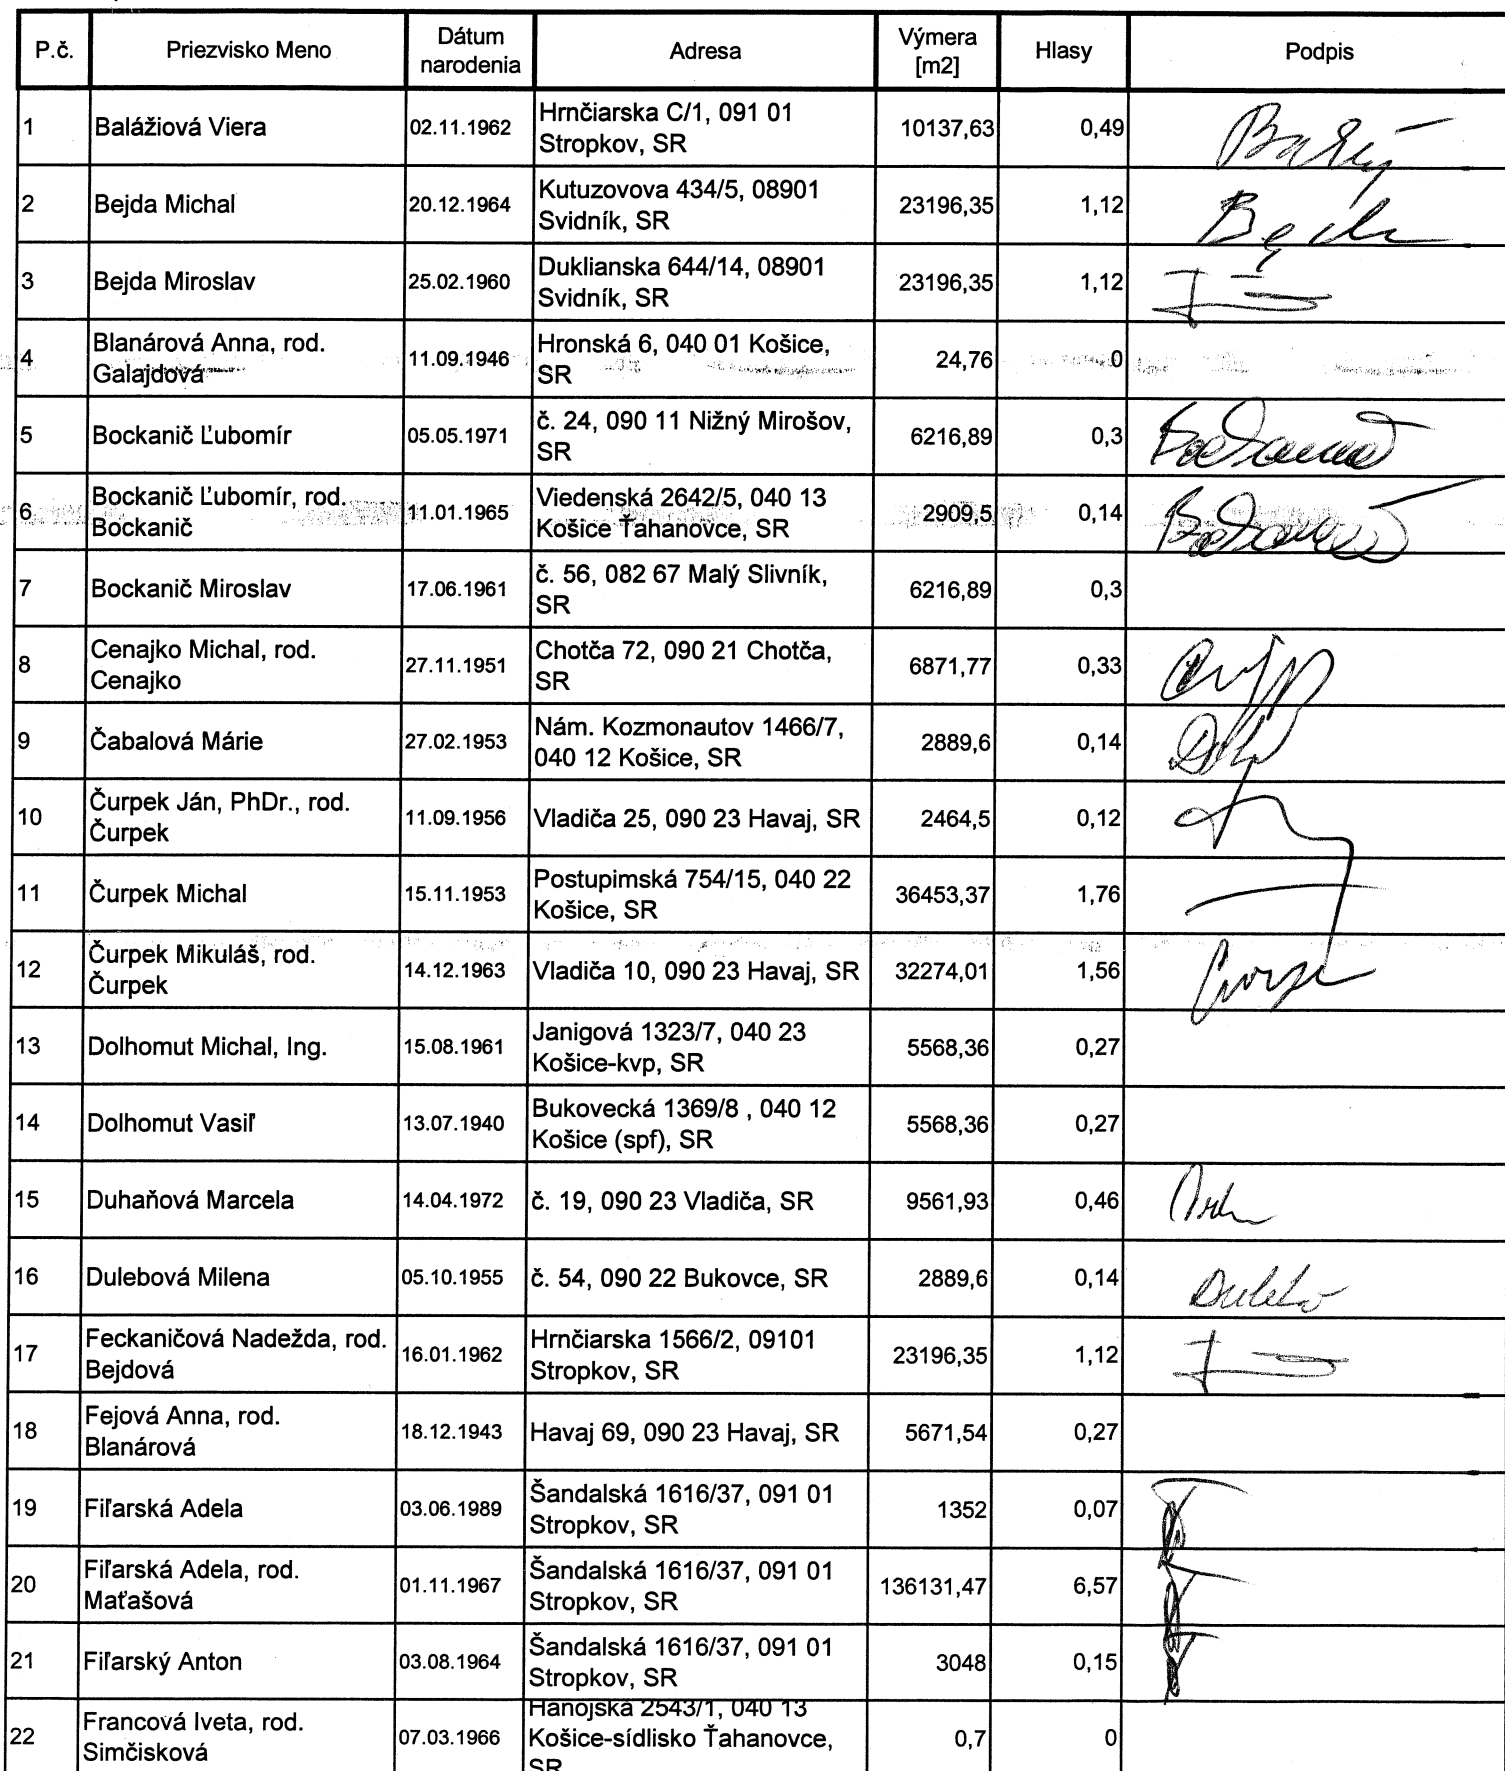 P.č. Priezvisko Meno Dátum narodenia Adresa Výmera [m2] Hlasy Podpis
1 Balážiová Viera 02.11.1962 Hrnčiarska C/1, 091 01 Stropkov, SR 10137,63 0,49
2 Bejda Michal 20.12.1964 Kutuzovova 434/5, 08901 Svidník, SR 23196,35 1,12
3 Bejda Miroslav 25.02.1960 Duklianska 644/14, 08901 Svidník, SR 23196,35 1,12
4 Blanárová Anna, rod. Galajdová 11.09.1946 Hronská 6, 040 01 Košice, SR 24,76 0
5 Bockanič Ľubomír 05.05.1971 č. 24, 090 11 Nižný Mirošov, SR 6216,89 0,3
6 Bockanič Ľubomír, rod. Bockanič 11.01.1965 Viedenská 2642/5, 040 13 Košice Ťahanovce, SR 2909,5 0,14
7 Bockanič Miroslav 17.06.1961 č. 56, 082 67 Malý Slivník, SR 6216,89 0,3
8 Cenajko Michal, rod. Cenajko 27.11.1951 Chotča 72, 090 21 Chotča, SR 6871,77 0,33
9 Čabalová Márie 27.02.1953 Nám. Kozmonautov 1466/7, 040 12 Košice, SR 2889,6 0,14
10 Čurpek Ján, PhDr., rod. Čurpek 11.09.1956 Vladiča 25, 090 23 Havaj, SR 2464,5 0,12
11 Čurpek Michal 15.11.1953 Postupimská 754/15, 040 22 Košice, SR 36453,37 1,76
12 Čurpek Mikuláš, rod. Čurpek 14.12.1963 Vladiča 10, 090 23 Havaj, SR 32274,01 1,56
13 Dolhomut Michal, Ing. 15.08.1961 Janigová 1323/7, 040 23 Košice-kvp, SR 5568,36 0,27
14 Dolhomut Vasiľ 13.07.1940 Bukovecká 1369/8 , 040 12 Košice (spf), SR 5568,36 0,27
15 Duhaňová Marcela 14.04.1972 č. 19, 090 23 Vladiča, SR 9561,93 0,46
16 Dulebová Milena 05.10.1955 č. 54, 090 22 Bukovce, SR 2889,6 0,14
17 Feckaničová Nadežda, rod. Bejdová 16.01.1962 Hrnčiarska 1566/2, 09101 Stropkov, SR 23196,35 1,12
18 Fejová Anna, rod. Blanárová 18.12.1943 Havaj 69, 090 23 Havaj, SR 5671,54 0,27
19 Fiľarská Adela 03.06.1989 Šandalská 1616/37, 091 01 Stropkov, SR 1352 0,07
20 Fiľarská Adela, rod. Maťašová 01.11.1967 Šandalská 1616/37, 091 01 Stropkov, SR 136131,47 6,57
21 Fiľarský Anton 03.08.1964 Šandalská 1616/37, 091 01 Stropkov, SR 3048 0,15
22 Francová Iveta, rod. Simčisková 07.03.1966 Hanojská 2543/1, 040 13 Košice-sídlisko Ťahanovce, SR 0,7 0